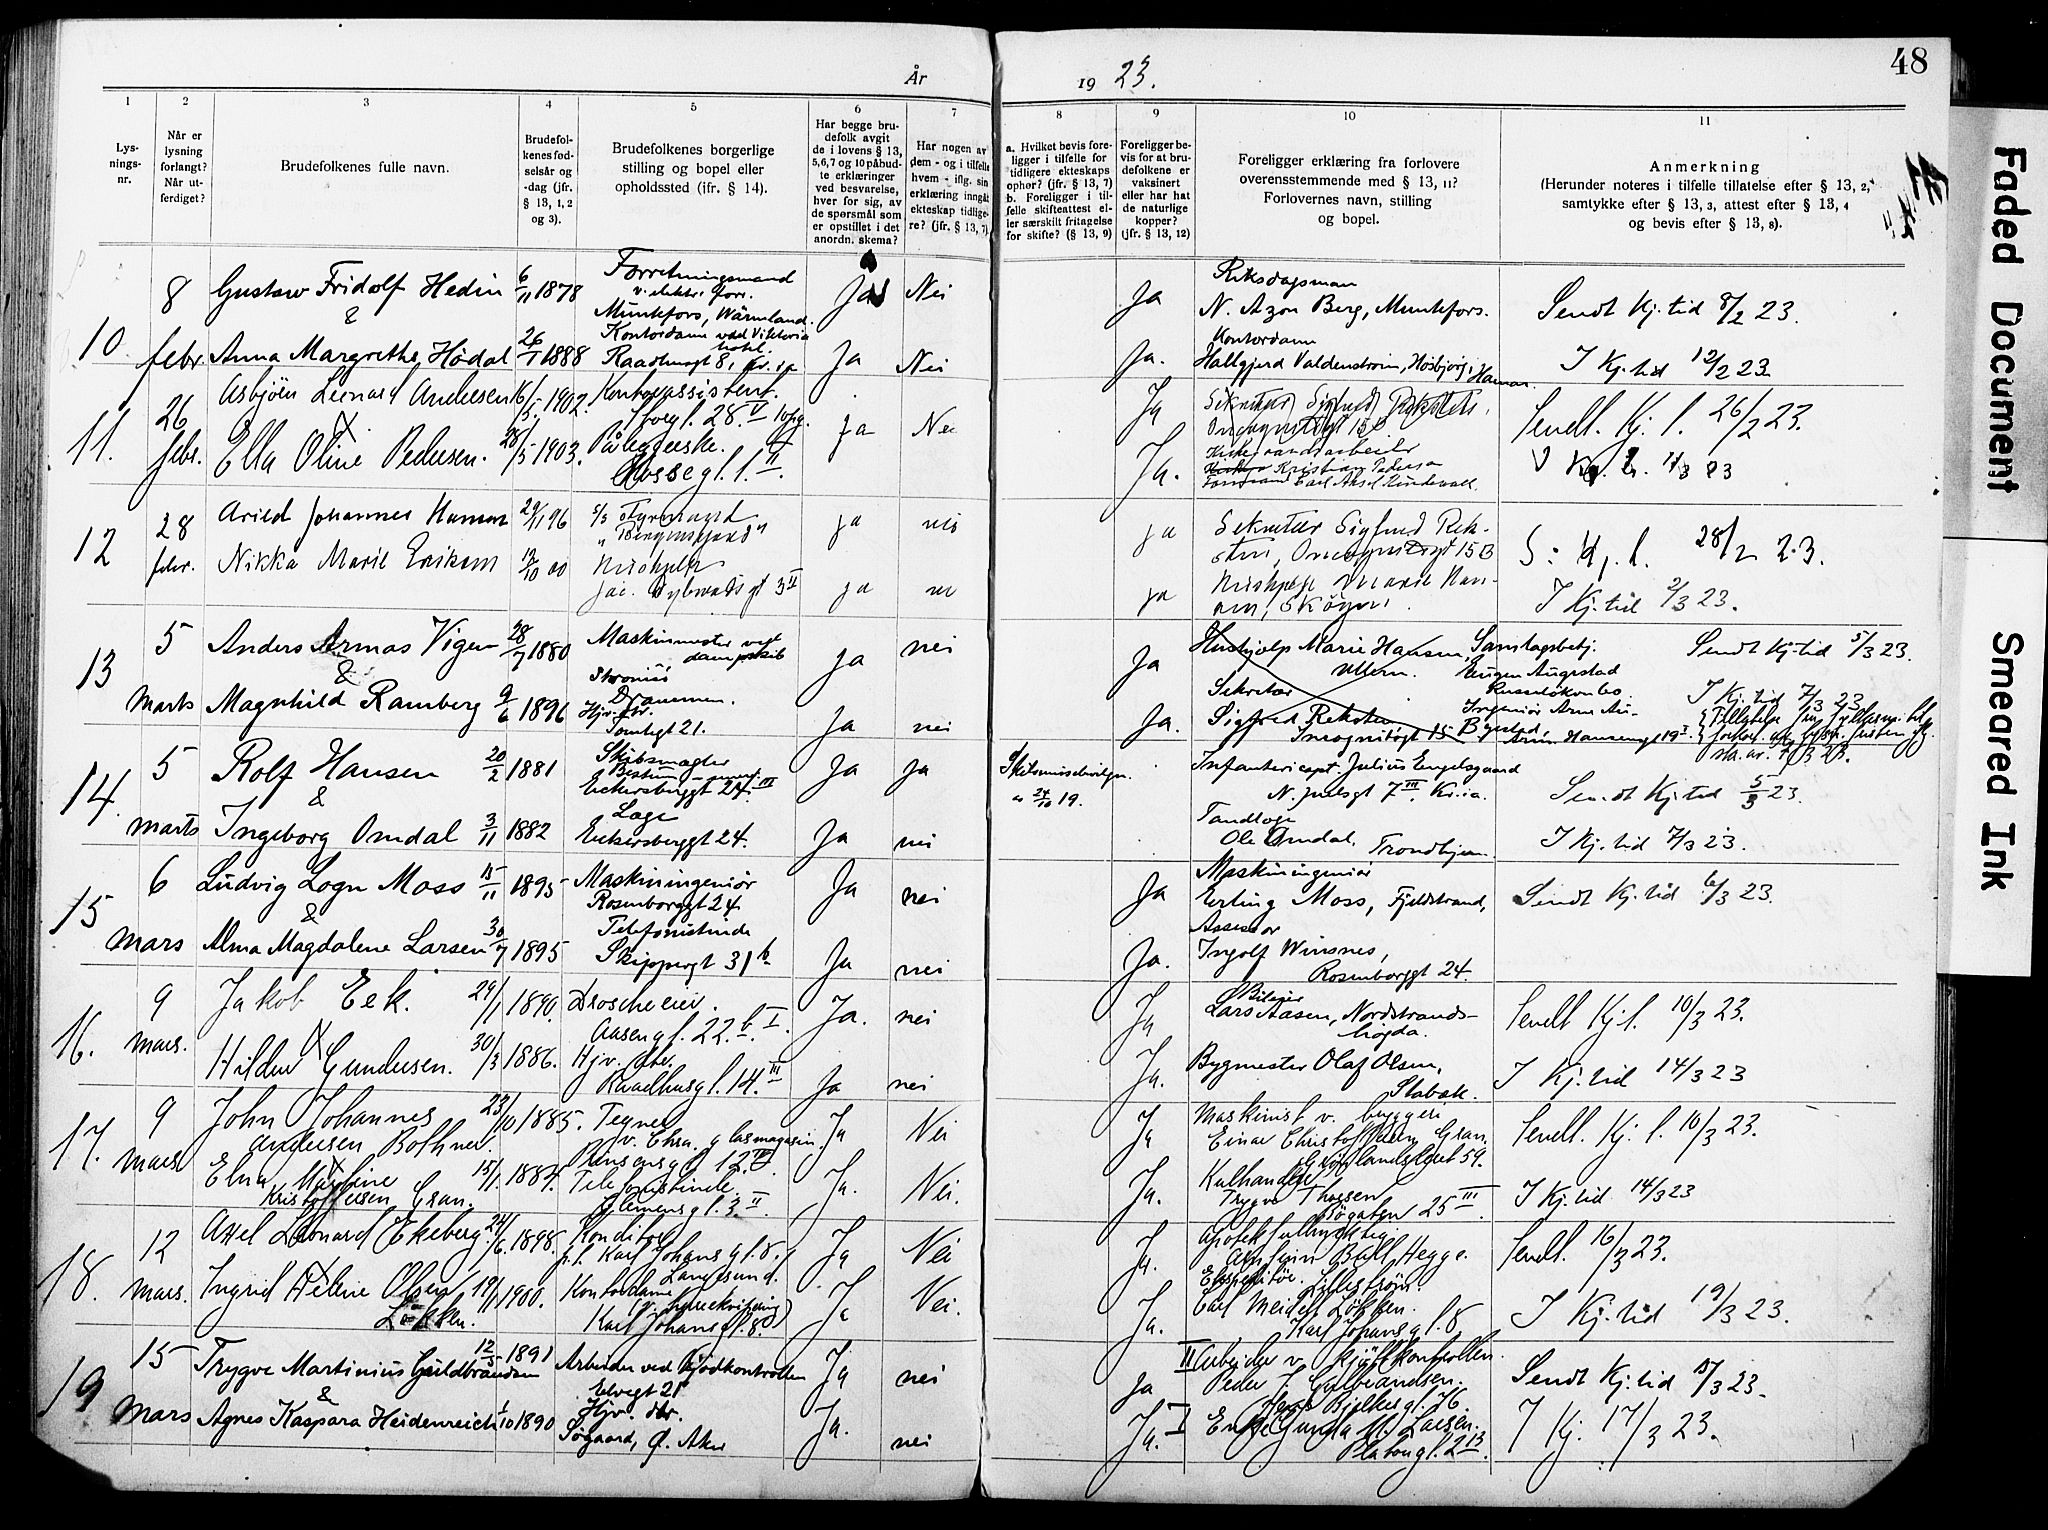 48
År 1923.
1 2 3 4 5 6 7 8 9 10 11
Lysningsnr.
Når er lysning forlangt? Når utferdiget?
Brudefolkenes fulle navn.
Brudefolkenes fødselsår og -dag (jfr. § 13, 1, 2 og 3).
Brudefolkenes borgerlige stilling og bopel eller opholdssted (ifr. § 14).
Har begge brudefolk avgit de i lovens § 13, 5,6,7 og 10 påbudte erklæringer ved besvarelse, hver for sig, av de spørsmål som er opstillet i det anordn. skema?
Har nogen av dem - og i tilfelle hvem - iflg. sin erklæring inngåt ekteskap tidligere? (jfr. § 13, 7)
a. Hvilket bevis foreligger i tilfelle for tidligere ekteskaps ophør? (jfr. § 13, 7)
b. Foreligger i tilfelle skifteattest eller særskilt fritagelse for skifte? (§ 13, 9)
Foreligger bevis for at brudefolkene er vaksinert eller har hat de naturlige kopper? (jfr. § 13, 12)
Foreligger erklæring fra forlovere overensstemmende med § 13, 11? Forlovernes navn, stilling og bopel.
Anmerkning
(Herunder noteres i tilfelle tillatelse efter § 13, 2, samtykke efter § 13, 3, attest efter § 13, 4 og bevis efter § 13, 8).
10 8 febr. Gustav Fridolf Hedin 6/11 1878 Forretningsmand v. elektr. forr. Munkfors, Wärmland. Ja Nei Ja Riksdagsman N. Azon Berg, Munkfors. Sendt Kj.tid 8/2 23.
& Anna Margrethe Hødal 26/1 1888 Kontordame ved Viktoria hotel. Raadhusgt 8, Ja Nei Ja. Kontordame Hallgjerd Valdenstrøm, Hosbjørg, Hamar. I Kj.tid 12/2 23.
11. 26 febr. Asbjörn Leonard Andersen 1902. Kontorassistent. Ja Nei Ja Sekretær Sigfred Reksten, Sendt. Kj. t. 26/2 23.
Ella Oline Pedersen. 28/5 1903. Påleggerske. Mossegt. 1. II Ja. Kirkegaardsarbeider Kristian Pedersen
12 28 febr. Arild Johannes Hansen 29/11 96 s/s Fyrmand "Bergensfjord" ja nei ja Sekretær Sigfred Reksten, Incognitogt 15 B S: Kj. t. 28/2 23.
Nikka Marie Eriksen 12/10 00 Hushjelp Jac. Dybwadsgt 3 II ja nei ja Hushjelp Marie Hansen, Skøyen. I Kj.tid 2/3 23.
13 5 marts Anders Armas Vigen 28/7 1880 Maskinmester ved dampskib Strømsö Drammen. Ja nei Ja Hushjelp Marie Hansen, Ullern. Samlagsbetj. Eugen Augestad Russeløkvn 60. Sendt Kj.tid 5/3 23.
& Magnhild Ramberg 9/6 1896 Hjv. dtr. Tomtegt 21. Ja nei Ja. Sekretær Sigfred Reksten Incognitogt 15 B Ingeniør Arne I Kj.tid 7/3 23
14. 5 marts Rolf Hansen 20/2 1881 Skibsmægler Bestum Eckersberggt 24 III Ja Ja Skilsmissebevilgn. av 24/10 19. Infantericapt. Julius Engelsgaard N. Juelsgt 7 III, Kr.ia. Sendt Kj.tid 5/3 23.
& Ingeborg Omdal 3/11 1882 Læge Eckersberggt 24. Ja nei Tandlæge Ole Omdal, Trondhjem. I Kj.tid 7/3 23.
15 6 mars Ludvig Logn Moss 15/11 1895 Maskiningeniør Rosenborggt 24 Ja nei Ja Maskiningeniør Erling Moss, Fjeldstrand, Sendt Kj.tid 6/3 23.
& Alma Magdalene Larsen 30/7 1895 Telefonistinde Skippergt 31 b Ja nei Ja. Assessor Ingolf Winsnes, Rosenborggt 24.
16. 9 mars. Jakob Eek. 29/1 1890. Droscheeier. Aasengt. 22 b. I Ja. nei Ja Bileier Lars Aasen, Nordstrandshøgda. Sendt Kj.t. 10/3 23.
Hilda Gundersen. 30/3 1886. Hjv. dtr. Raadhusgt. 14. III Ja nei Ja. Bygmester Olaf Olsen, Stabæk. I Kj.tid 14/3 23
17. 9 mars John Johannes Andersen Bothner. 23/10 1885. Tegner v. Chra. glasmagasin. Prinsensgt 12 Ja Nei Ja Maskinist v. byggeri Einar Christoffersen Gran. Grønlandsleret 59. Sendt. Kj. t. 10/3 23.
Elna Martine Kristoffersen Gran. 15/1 1887. Telefonistinde. Clemensgt. 3. II Ja. Nei. Ja. Kulhandler Trygve Thoresen Bögaten 25 III I Kj.tid 14/3 23
18. 12 mars. Axel Leonard Ekeberg. 24/6 1898. Konditor p.t. Karl Johansgt. 8. Langesund. Ja Nei Ja. Sendt. 16/3 23.
Ingrid Helene Olsen Løkken. 19/11 1900. Kontordame Karl Johansgt. 8. Ja Nei. Ja. Ekspeditör. Carl Meidell Løkken. Karl Johansgt. 8 I Kj.tid 19/3 23.
19 15 mars Trygve Martinius Guldbrandsen 12/5 1891 Arbeider ved kjødkontrollen Elvegt 21 Ja nei Ja II Arbeider v. kjøttkontrollen. Peder J. Gulbrandsen. Jens Bjelkesgt. 76. Sendt Kj.tid 15/3 23.
& Agnes Kaspara Heidenreich 1/10 1890 Hjv. dtr. Søgaard, Ø. Aker Ja. nei Ja. I Enke Gunda M. Larsen. Platousgt. 2 I Kj. 17/3 23.
Faded Document
Smeared Ink